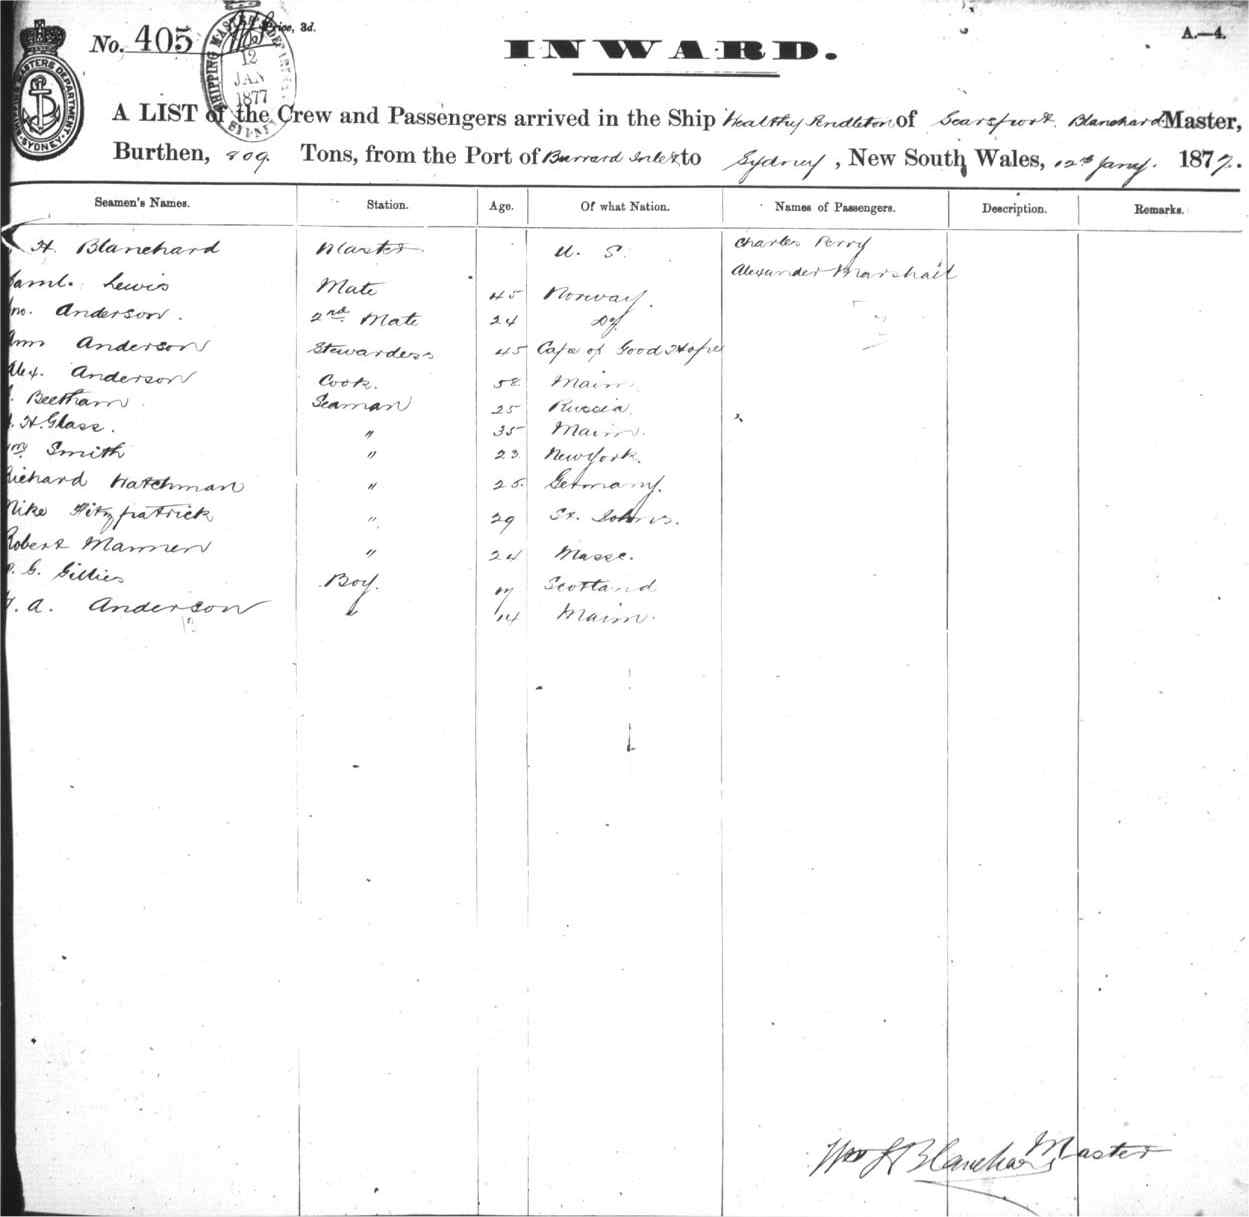 No. 405
Price, 3d.
A.—4.
SHIPPING MASTERS DEPARTMENT SYDNEY
12
JAN
1877
INWARD.
A LIST of the Crew and Passengers arrived in the Ship Wealthy Pendleton of Searsport Blanchard Master,
Burthen, 809 Tons, from the Port of Burrard Inlet to Sydney, New South Wales, 12th Jany. 1877.
Seamen's Names. Station. Age. Of what Nation. Names of Passengers. Description. Remarks.
H. Blanchard Master U. S. Charles Perry
Alexander Marshall
Saml. Lewis Mate 45 Norway.
Jno. Anderson. 2nd Mate 24 Do
Ann Anderson Stewardess 45 Cape of Good Hope
Alex. Anderson Cook. 52 Main
Beetham. Seaman 25 Russia
H. Glass. " 35 Main.
Wm Smith " 23 New York.
Richard Hatchman " 25 Germany.
Mike Fitzpatrick " 29 St. Johns.
Robert Mannen " 24 Masse.
G. Gillies Boy. 17 Scotland
A. Anderson " 14 Main.
Wm H Blanchard Master